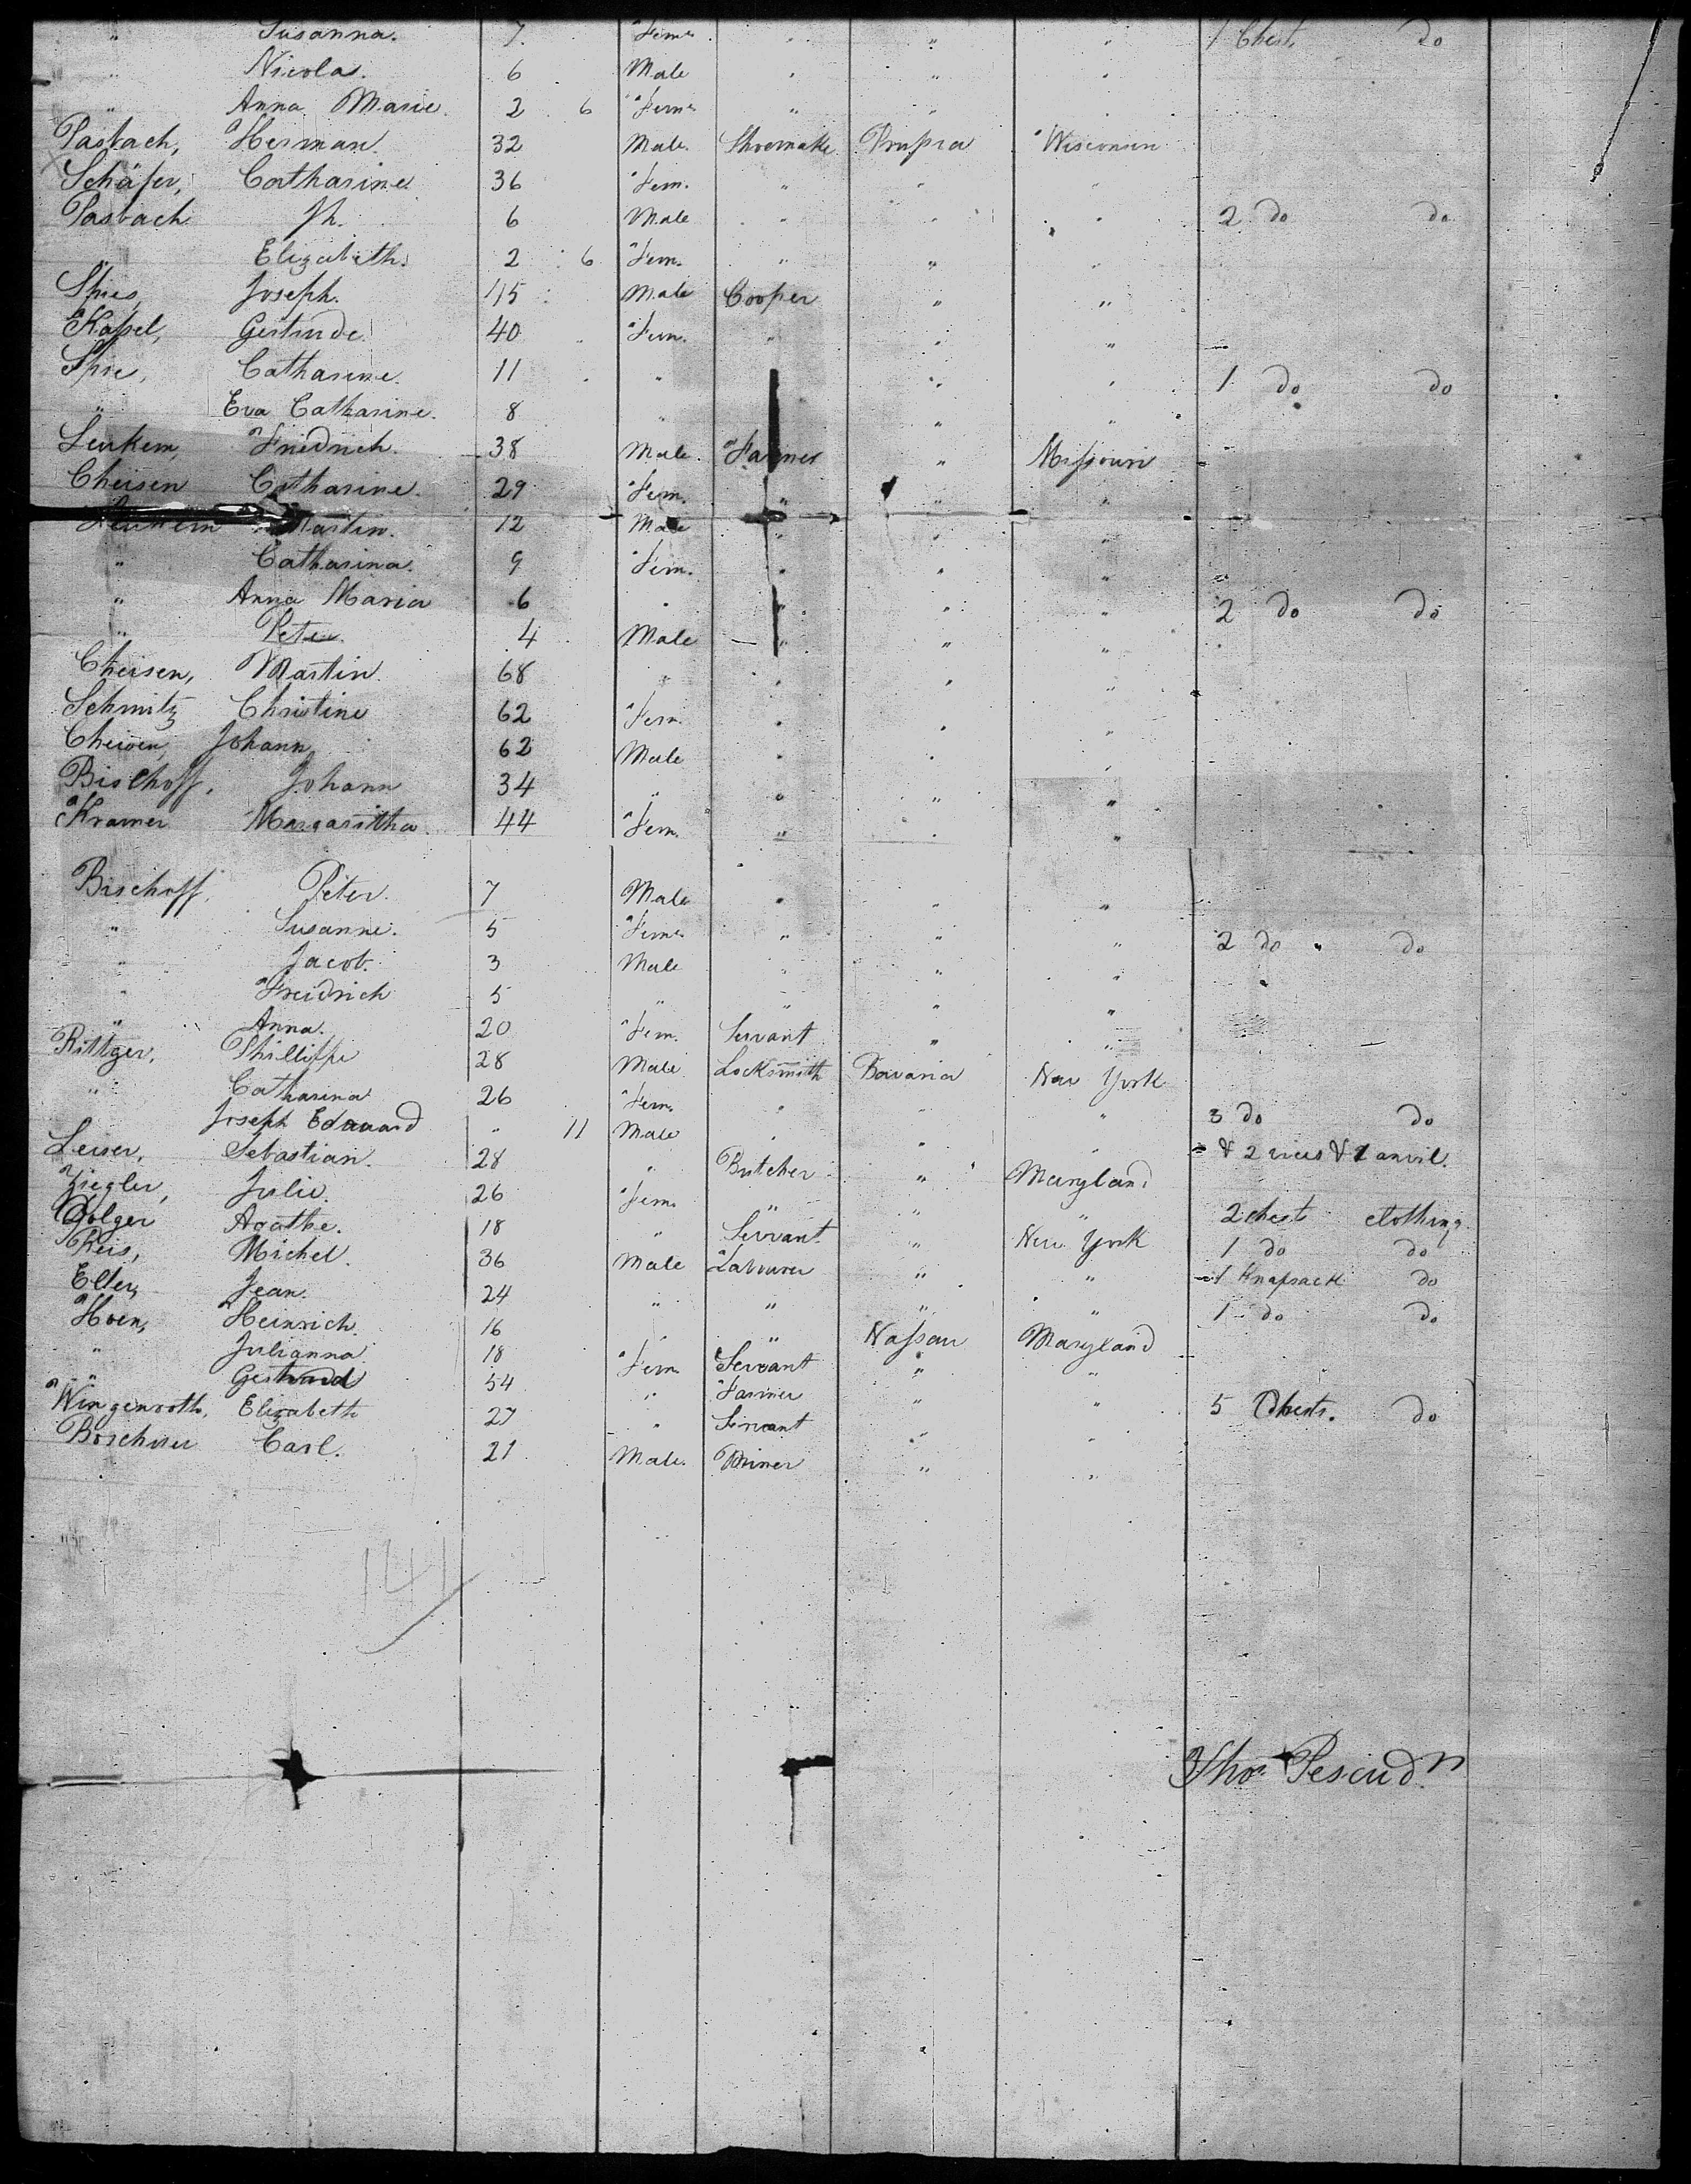 " Susanna. 7. Fem. " " " 1 Chest. do
" Nicola. 6 Male " " "
" Anna Marie. 2 6 Fem. " " "
Pasbach, Herman. 32 Male. Shoemake Prussia Wisconsin
Schäfer, Catharine. 36 Fem. " " "
Pasbach Jh. 6 Male " " " 2 do do
" Elizabeth. 2 6 Fem. " " "
Spies, Joseph. 45 Male Cooper " "
Kassel, Gertrude. 40 Fem. " " "
Spie, Catharine. 11 " " " 1 do do
" Eva Catharine. 8 " " "
Leukem, Friedrich. 38 Male. Farmer " Missouri
Cheisen Catharine. 29 Fem. " " "
Leukem Martin. 12 Male " " "
" Catharina. 9 Fem. " " "
" Anna Maria 6 " " " " 2 do do
" Peter. 4 Male " " "
Cheisen, Martin. 68 " " " "
Schmitz Christine 62 Fem. " " "
Johann 62 Male " " "
Bischoff, Johann 34 " " " "
Kramer Margaritha. 44 Fem. " " "
Bischoff, Peter. 7 Male " " "
" Susanne. 5 Fem. " " " 2 do " do
" Jacob. 3 Male " " "
" Freidrich 5 " " " "
" Anna. 20 Fem. Servant " "
Rittger, Phillippe 28 Male Locksmith Bavaria New York
" Catharina 26 Fem. " " " 3 do do
Joseph Edouard " 11 Male " " " & 2 vices & 1 anvil.
Leiser, Sebastian. 28 " Butcher " Maryland
Ziegler, Julie. 26 Fem. " " " 2 chests clothing.
Dolger Agathe. 18 " Servant " New York 1 do do
Reis, Michel. 36 Male Labourer " " 1 Knapsack do
Jean. 24 " " " " 1 do do
Hoen, Heinrich. 16 " " Nassau Maryland
" Julianna 18 Fem Servant " "
" Gertrud 54 " Farmer " " 5 Chests. do
Wingenroth, Elizabeth 27 " Servant " "
Carl. 21 Male. Miner " "
141
Thos